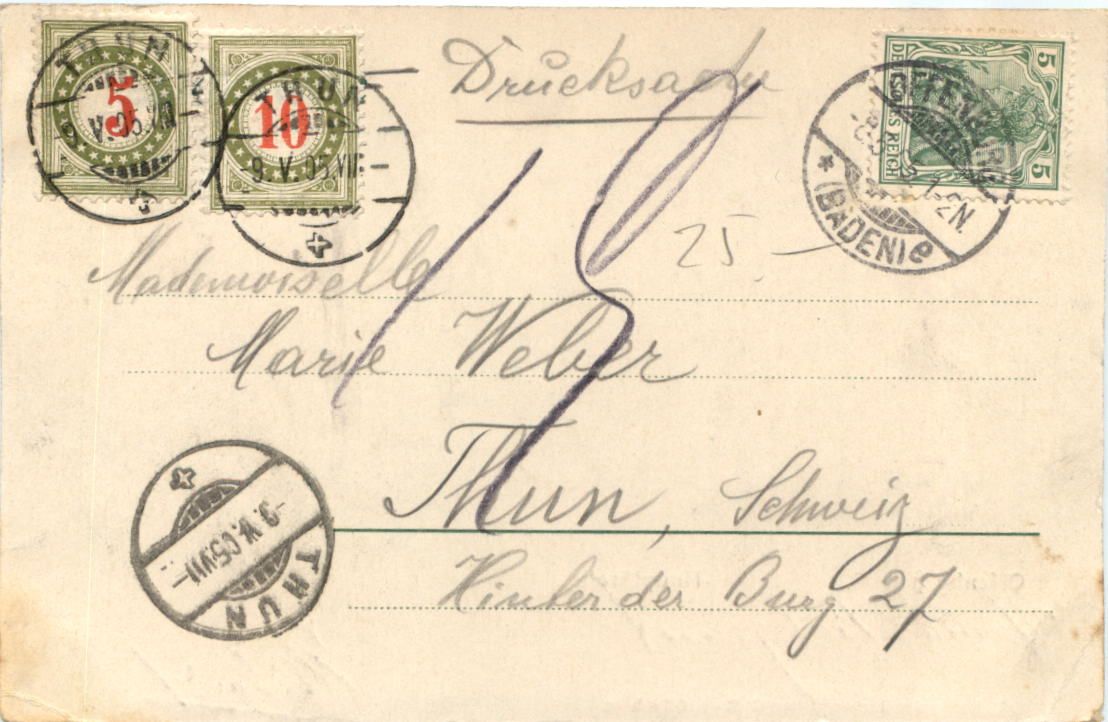 THUN
5
-9.V.05.VII
THUN
10
-9.V.05.VII-
Drucksache
DEUTSCHES REICH
5
5
OFFENBURG
(BADEN) e
2N.
15
25.—
Mademoiselle
Marie Weber
Thun, Schweiz
Hinter der Burg 27
THUN
-9.V.05.VII-